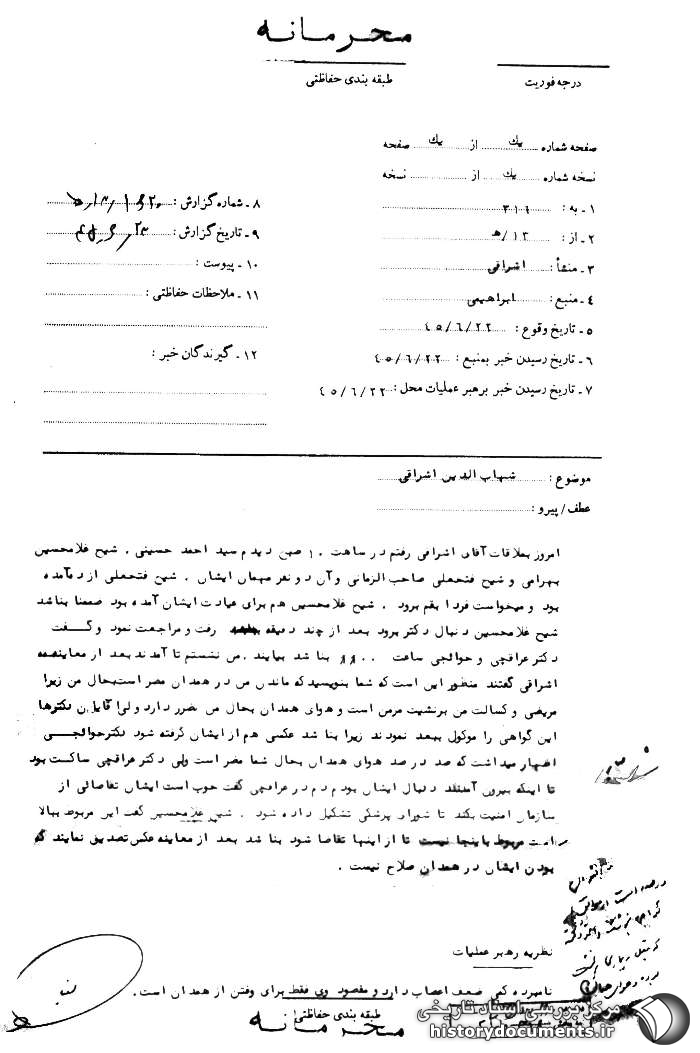 محرمانه
طبقه بندی حفاظتی
درجه فوریت
صفحه شماره یك از یك صفحه
نسخه شماره یك از نسخه
۱ ـ به : ۳۱۶
۲ ـ از : ۱۳/ ه‍
۳ ـ منشأ : اشراقی
۴ ـ منبع : ابراهیمی
۵ ـ تاریخ وقوع : ۴۵/۶/۲۲
۶ ـ تاریخ رسیدن خبر بمنبع : ۴۵/۶/۲۲
۷ ـ تاریخ رسیدن خبر برهبر عملیات محل : ۴۵/۶/۲۲
۸ ـ شماره گزارش :
۹ ـ تاریخ گزارش :
۱۰ ـ پیوست :
۱۱ ـ ملاحظات حفاظتی :
۱۲ ـ گیرندگان خبر :
موضوع : شهاب الدین اشراقی
عطف / پیرو :
امروز بملاقات آقای اشراقی رفتم در ساعت ۱۰ صبح دیدم سید احمد حسینی . شیخ غلامحسین
بهرامی و شیخ فتحعلی صاحب الزمانی و آن دو نفر میهمان ایشان . شیخ فتحعلی از ده آمده
بود و میخواست فردا بقم برود . شیخ غلامحسین هم برای عیادت ایشان آمده بود ضمنا بنا شد
شیخ غلامحسین دنبال دکتر برود بعد از چند دقیقه رفت و مراجعت نمود و گفت
دکتر عراقچی و حوالجی ساعت بنا شد بیایند . من نشستم تا آمدند بعد از معاینه
اشراقی گفتند منظور این است که شما بنویسید که ماندن من در همدان مضر است بحال من زیرا
مریضی و کسالت من برنشیت مزمن است و هوای همدان بحال من ضرر دارد ولی دکترها
این گواهی را موکول ببعد نمودند زیرا بنا شد عکسی هم از ایشان گرفته شود دکتر حوالجی
اظهار میداشت که صد در صد هوای همدان بحال شما مضر است ولی دکتر عراقچی ساکت بود
تا اینکه بیرون آمدند دنبال ایشان بودم دم در عراقچی گفت خوب است ایشان تقاضائی از
سازمان امنیت بکند تا شورای پزشکی تشکیل داده شود . شیخ غلامحسین گفت این مربوط ببالا
است مربوط باینجا نیست تا از اینها تقاضا شود بنا شد بعد از معاینه عکس تصدیق نمایند که
بودن ایشان در همدان صلاح نیست .
نظریه رهبر عملیات
نامبرده کمی ضعف اعصاب دارد و مقصود وی فقط برای رفتن از همدان است .
طبقه بندی حفاظتی
محرمانه
مرکز بررسی اسناد تاریخی
historydocuments.ir